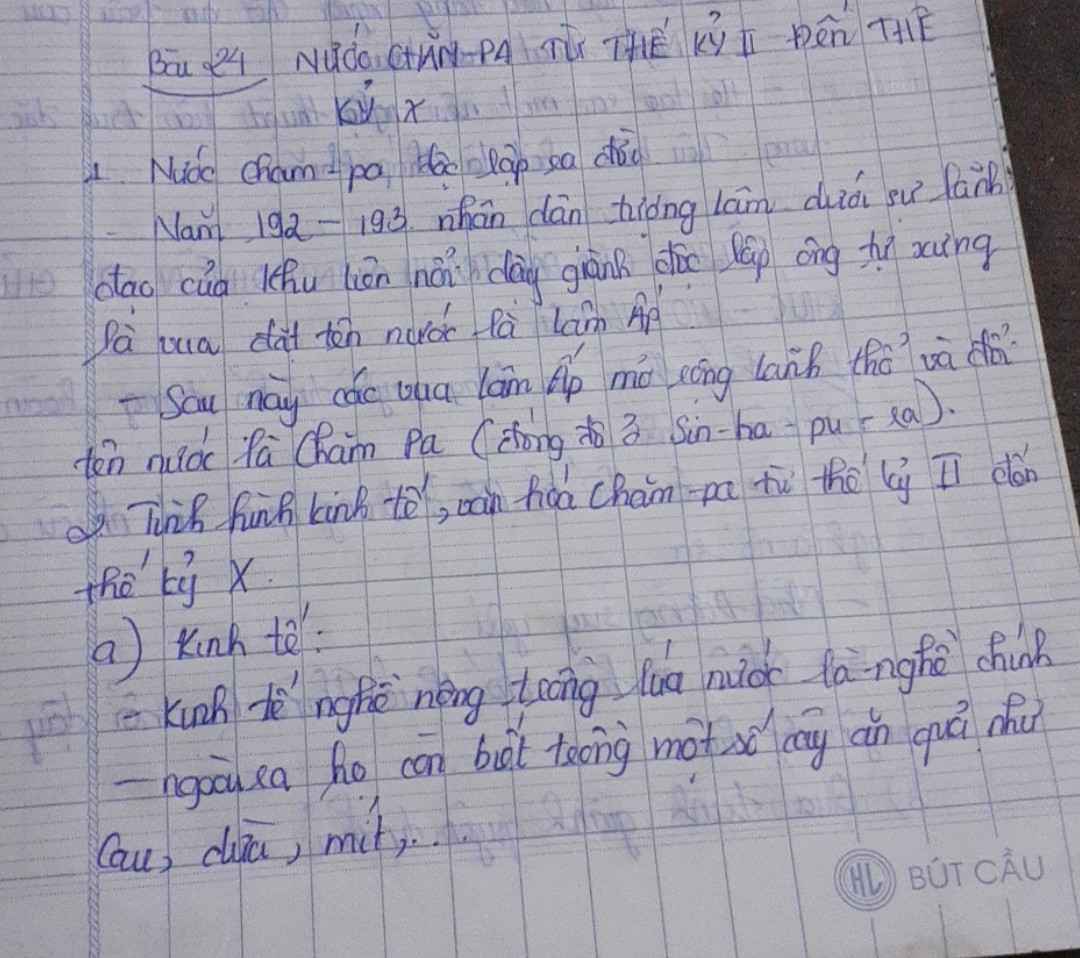 Bài 24 NƯỚC CHĂM-PA TỪ THẾ KỶ II ĐẾN THẾ
KỶ X
1. Nước Chăm-pa độc lập ra đời
- Năm 192 - 193 nhân dân tượng lâm dưới sự lãnh
đạo của Khu liên nổi dậy giành độc lập ông tự xưng
là vua đặt tên nước là Lâm Ấp
- Sau này các vua lâm Ấp mở rộng lãnh thổ và đổi
tên nước là Chăm Pa (đóng đô ở Sin-ha-pu-ra).
2. Tình hình kinh tế, văn hoá Chăm-pa từ thế kỷ II đến
thế kỷ X.
a) Kinh tế:
- Kinh tế nghề nông trồng lúa nước là nghề chính
- ngoài ra họ còn biết trồng một số cây ăn quả như
Cau, dừa, mít,...
HL BÚT CẦU